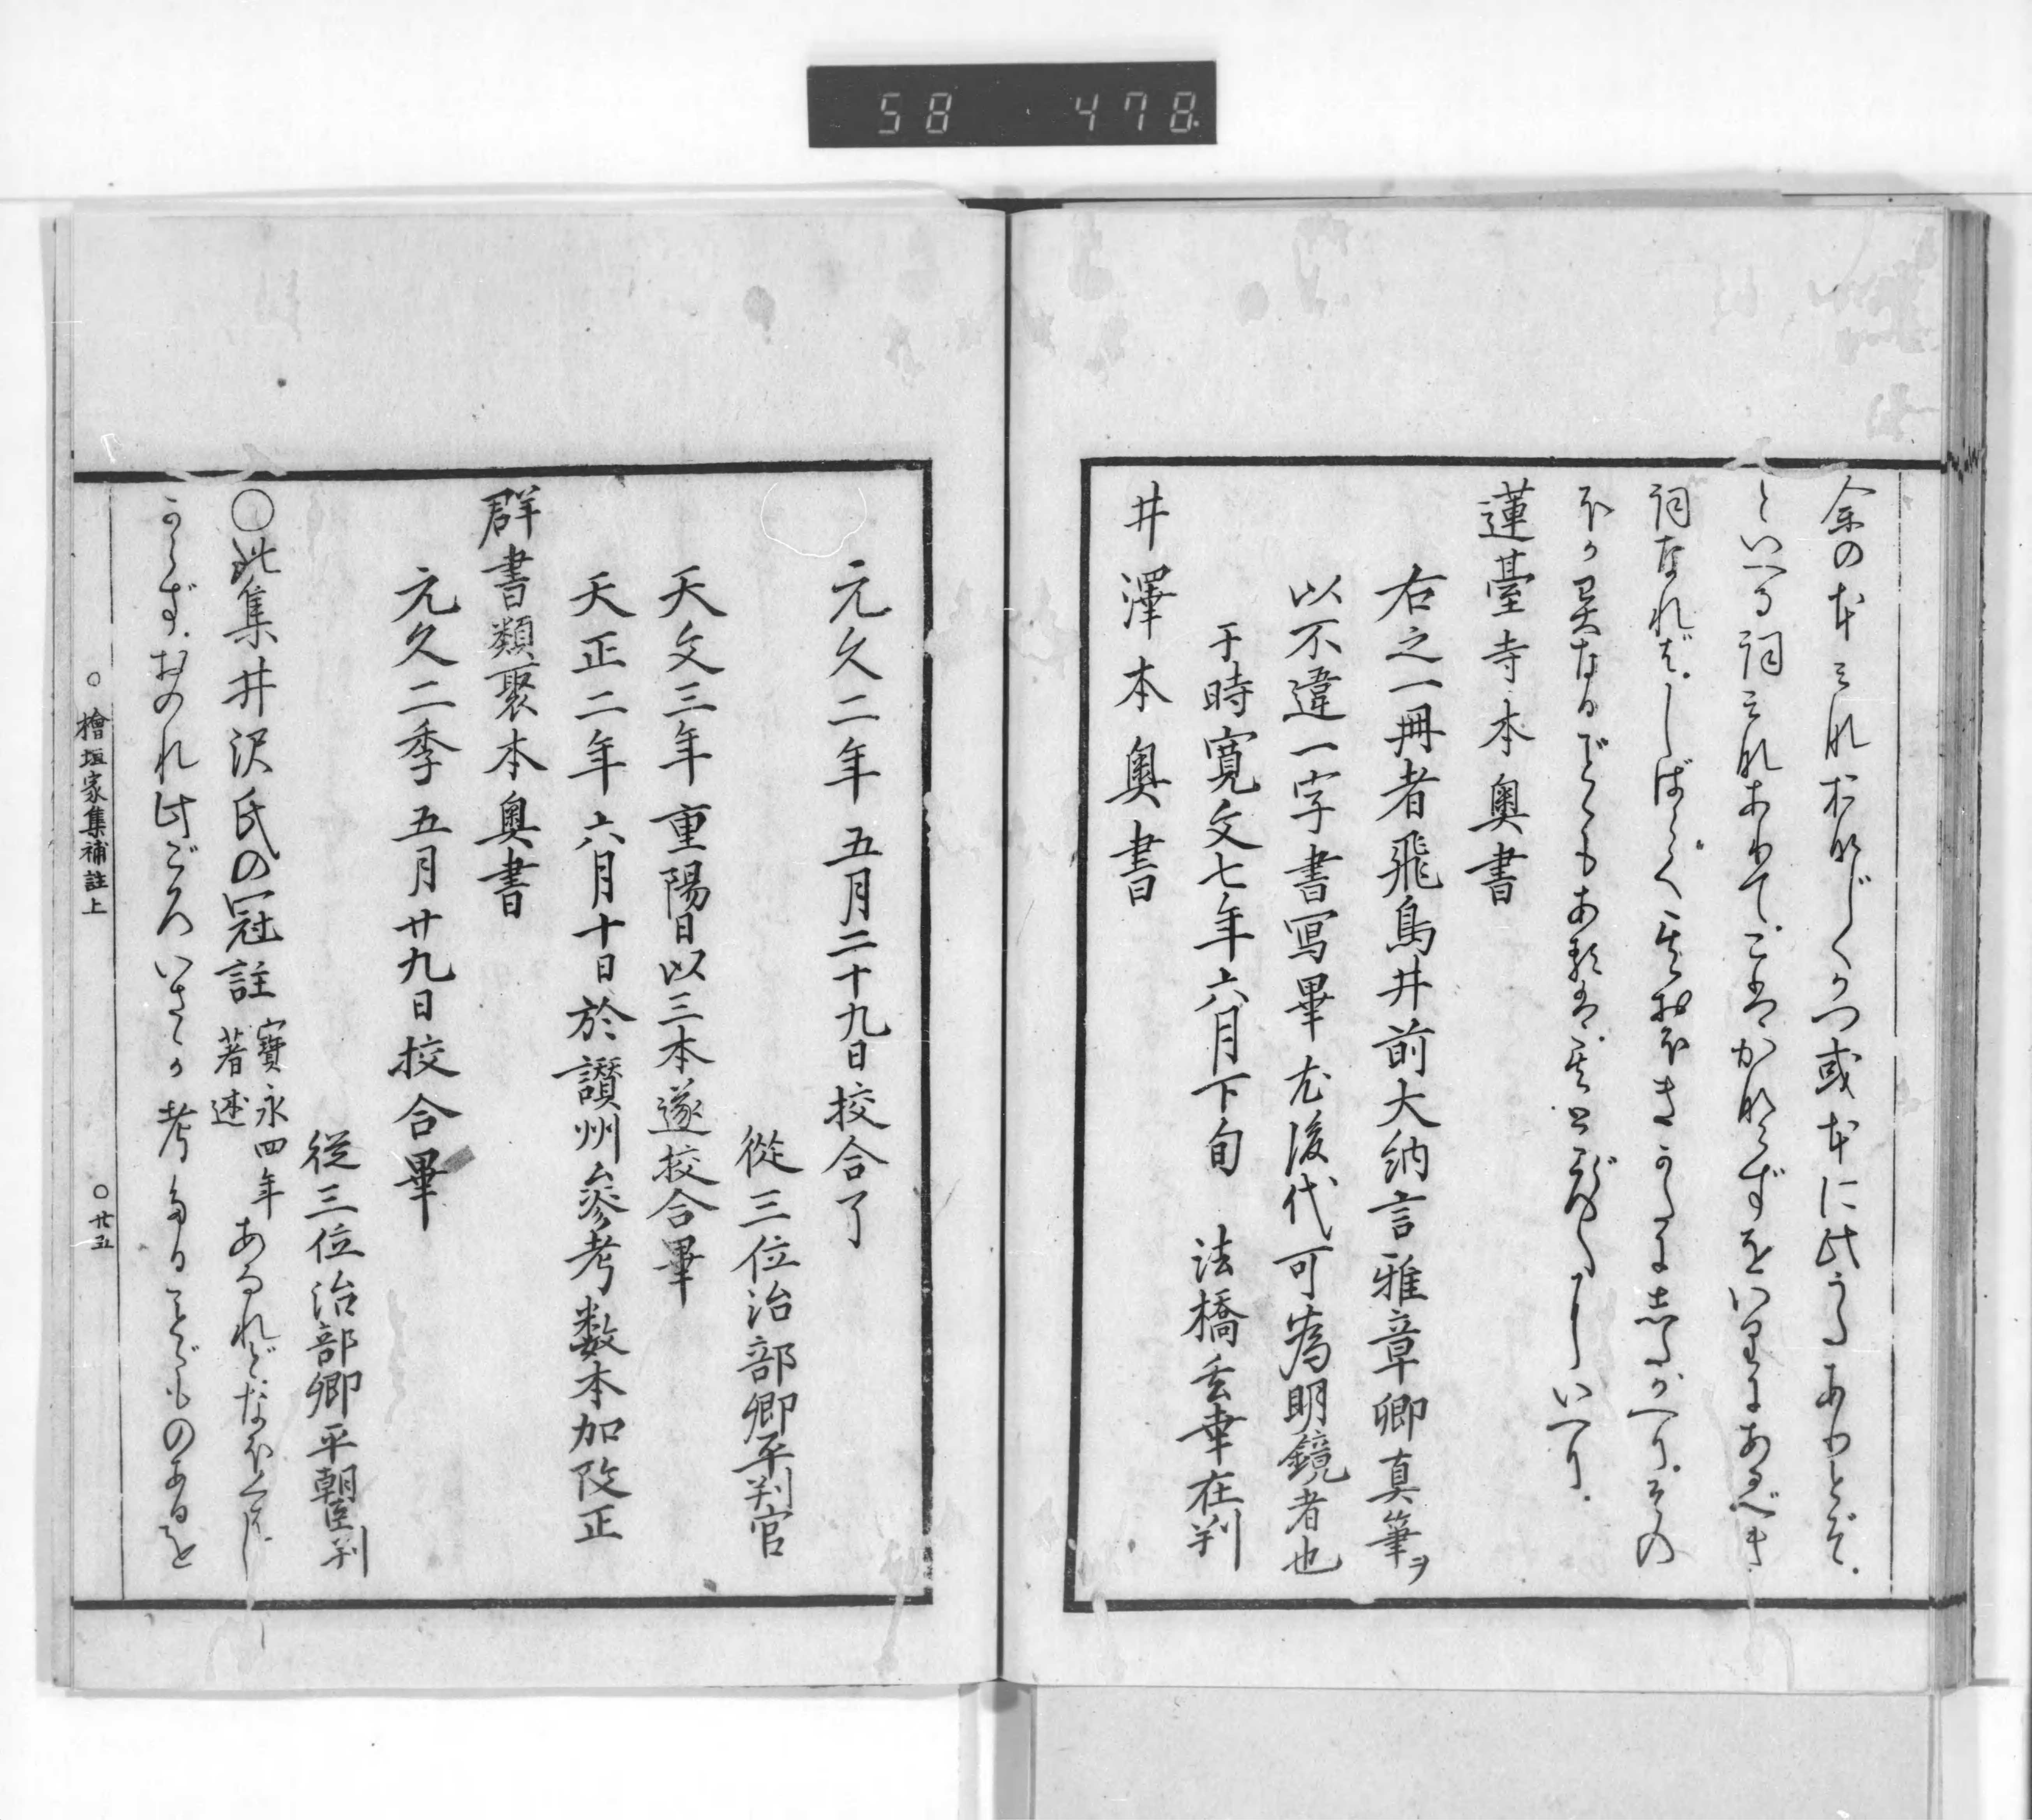 58 478
余の本みなおなじくかつ或本に此うたありとぞ
といへる詞みなありてこはかならずをいりにあるべき
詞なればしばらく其おほきかたにしたがへりその
ほか異なるどもあれば其ところ〴〵にいへり
蓮臺寺本奥書
右之一冊者飛鳥井前大納言雅章卿真筆ヲ
以不違一字書寫畢尤後代可為明鏡者也
于時寛文七年六月下旬 法橋 幸在判
井澤本奥書
元久二年五月二十九日挍合了
從三位治部卿平判官
天文三年重陽日以三本遂挍合畢
天正二年六月十日於讃州參考数本加改正
群書類聚本奥書
元久二季五月廿九日挍合畢
從三位治部卿平朝臣判
○此集井沢氏の冠註 寶永四年著述 あるれどなほくはし
からずおのれ此ごろいさゝか考たることどものあるを
○檜垣家集補註上 ○廿五